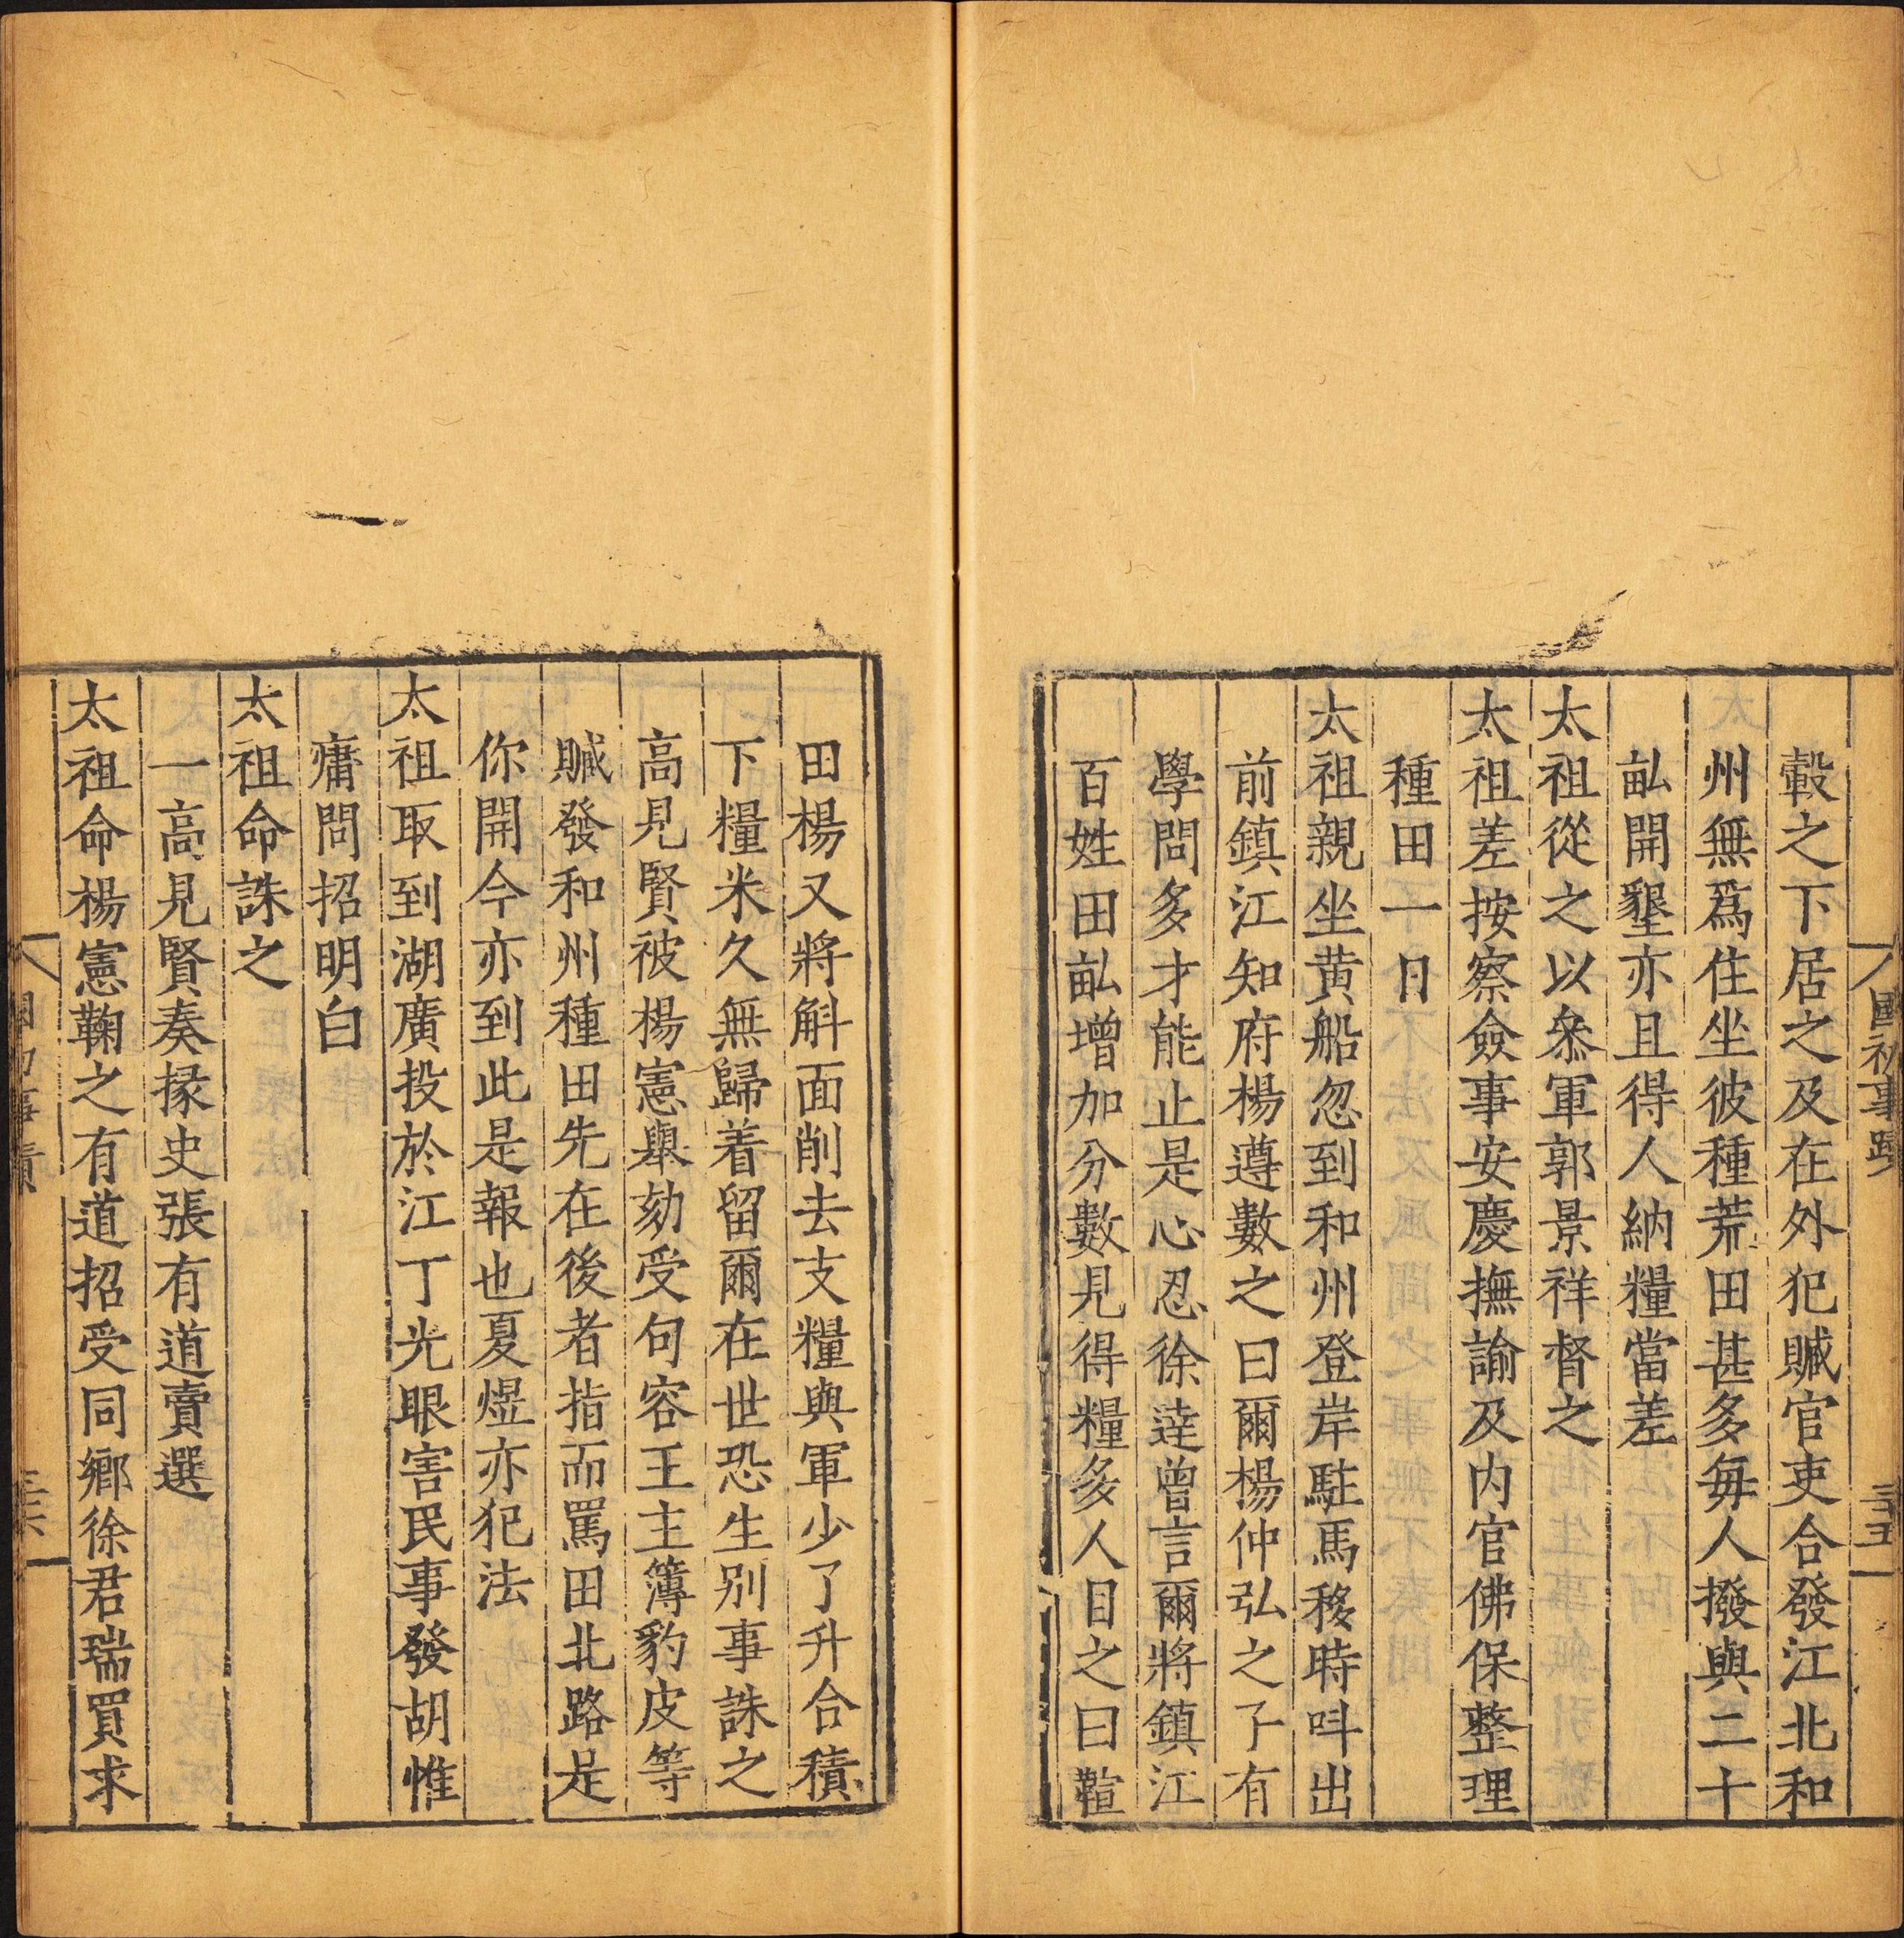 國初事蹟
三十五
轂之下居之及在外犯贓官吏合發江北和
州無爲住坐彼種荒田甚多每人撥與二十
畝開墾亦且得人納糧當差
太祖從之以叅軍郭景祥督之
太祖差按察僉事安慶撫諭及内官佛保整理
種田一日
太祖親坐黄船忽到和州登岸駐馬移時呌出
前鎮江知府楊遵數之曰爾楊仲弘之子有
學問多才能止是心忍徐達曾言爾將鎮江
百姓田畝增加分數見得糧多人目之曰鞾
田楊又將斛面削去支糧與軍少了升合積
下糧米久無歸着留爾在世恐生別事誅之
高見賢被楊憲舉劾受句容王主簿豹皮等
贓發和州種田先在後者指而罵田北路是
你開今亦到此是報也夏煜亦犯法
太祖取到湖廣投於江丁光眼害民事發胡惟
庸問招明白
太祖命誅之
一高見賢奏掾史張有道賣選
太祖命楊憲鞠之有道招受同鄉徐君瑞買求